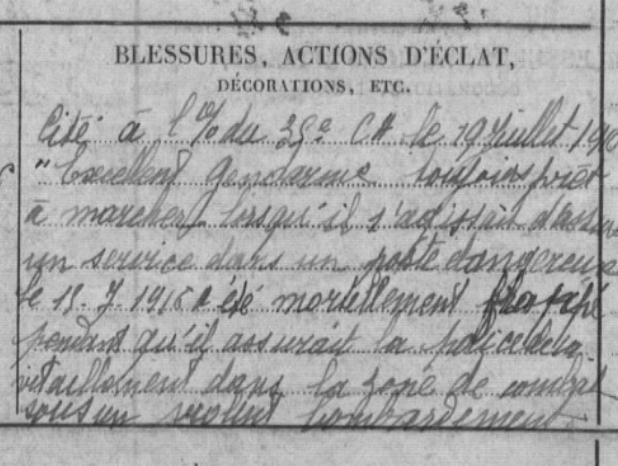 BLESSURES, ACTIONS D'ÉCLAT,
DÉCORATIONS, ETC.
Cité à l'O/ du 35e CA le 19 juillet 1916
"Excellent Gendarme toujours prêt
à marcher lorsqu'il s'agissait d'assurer
un service dans un poste dangereux
le 15.7.1916 a été mortellement frappé
pendant qu'il assurait la police de
ravitaillement dans la zone de combat
sous un violent bombardement